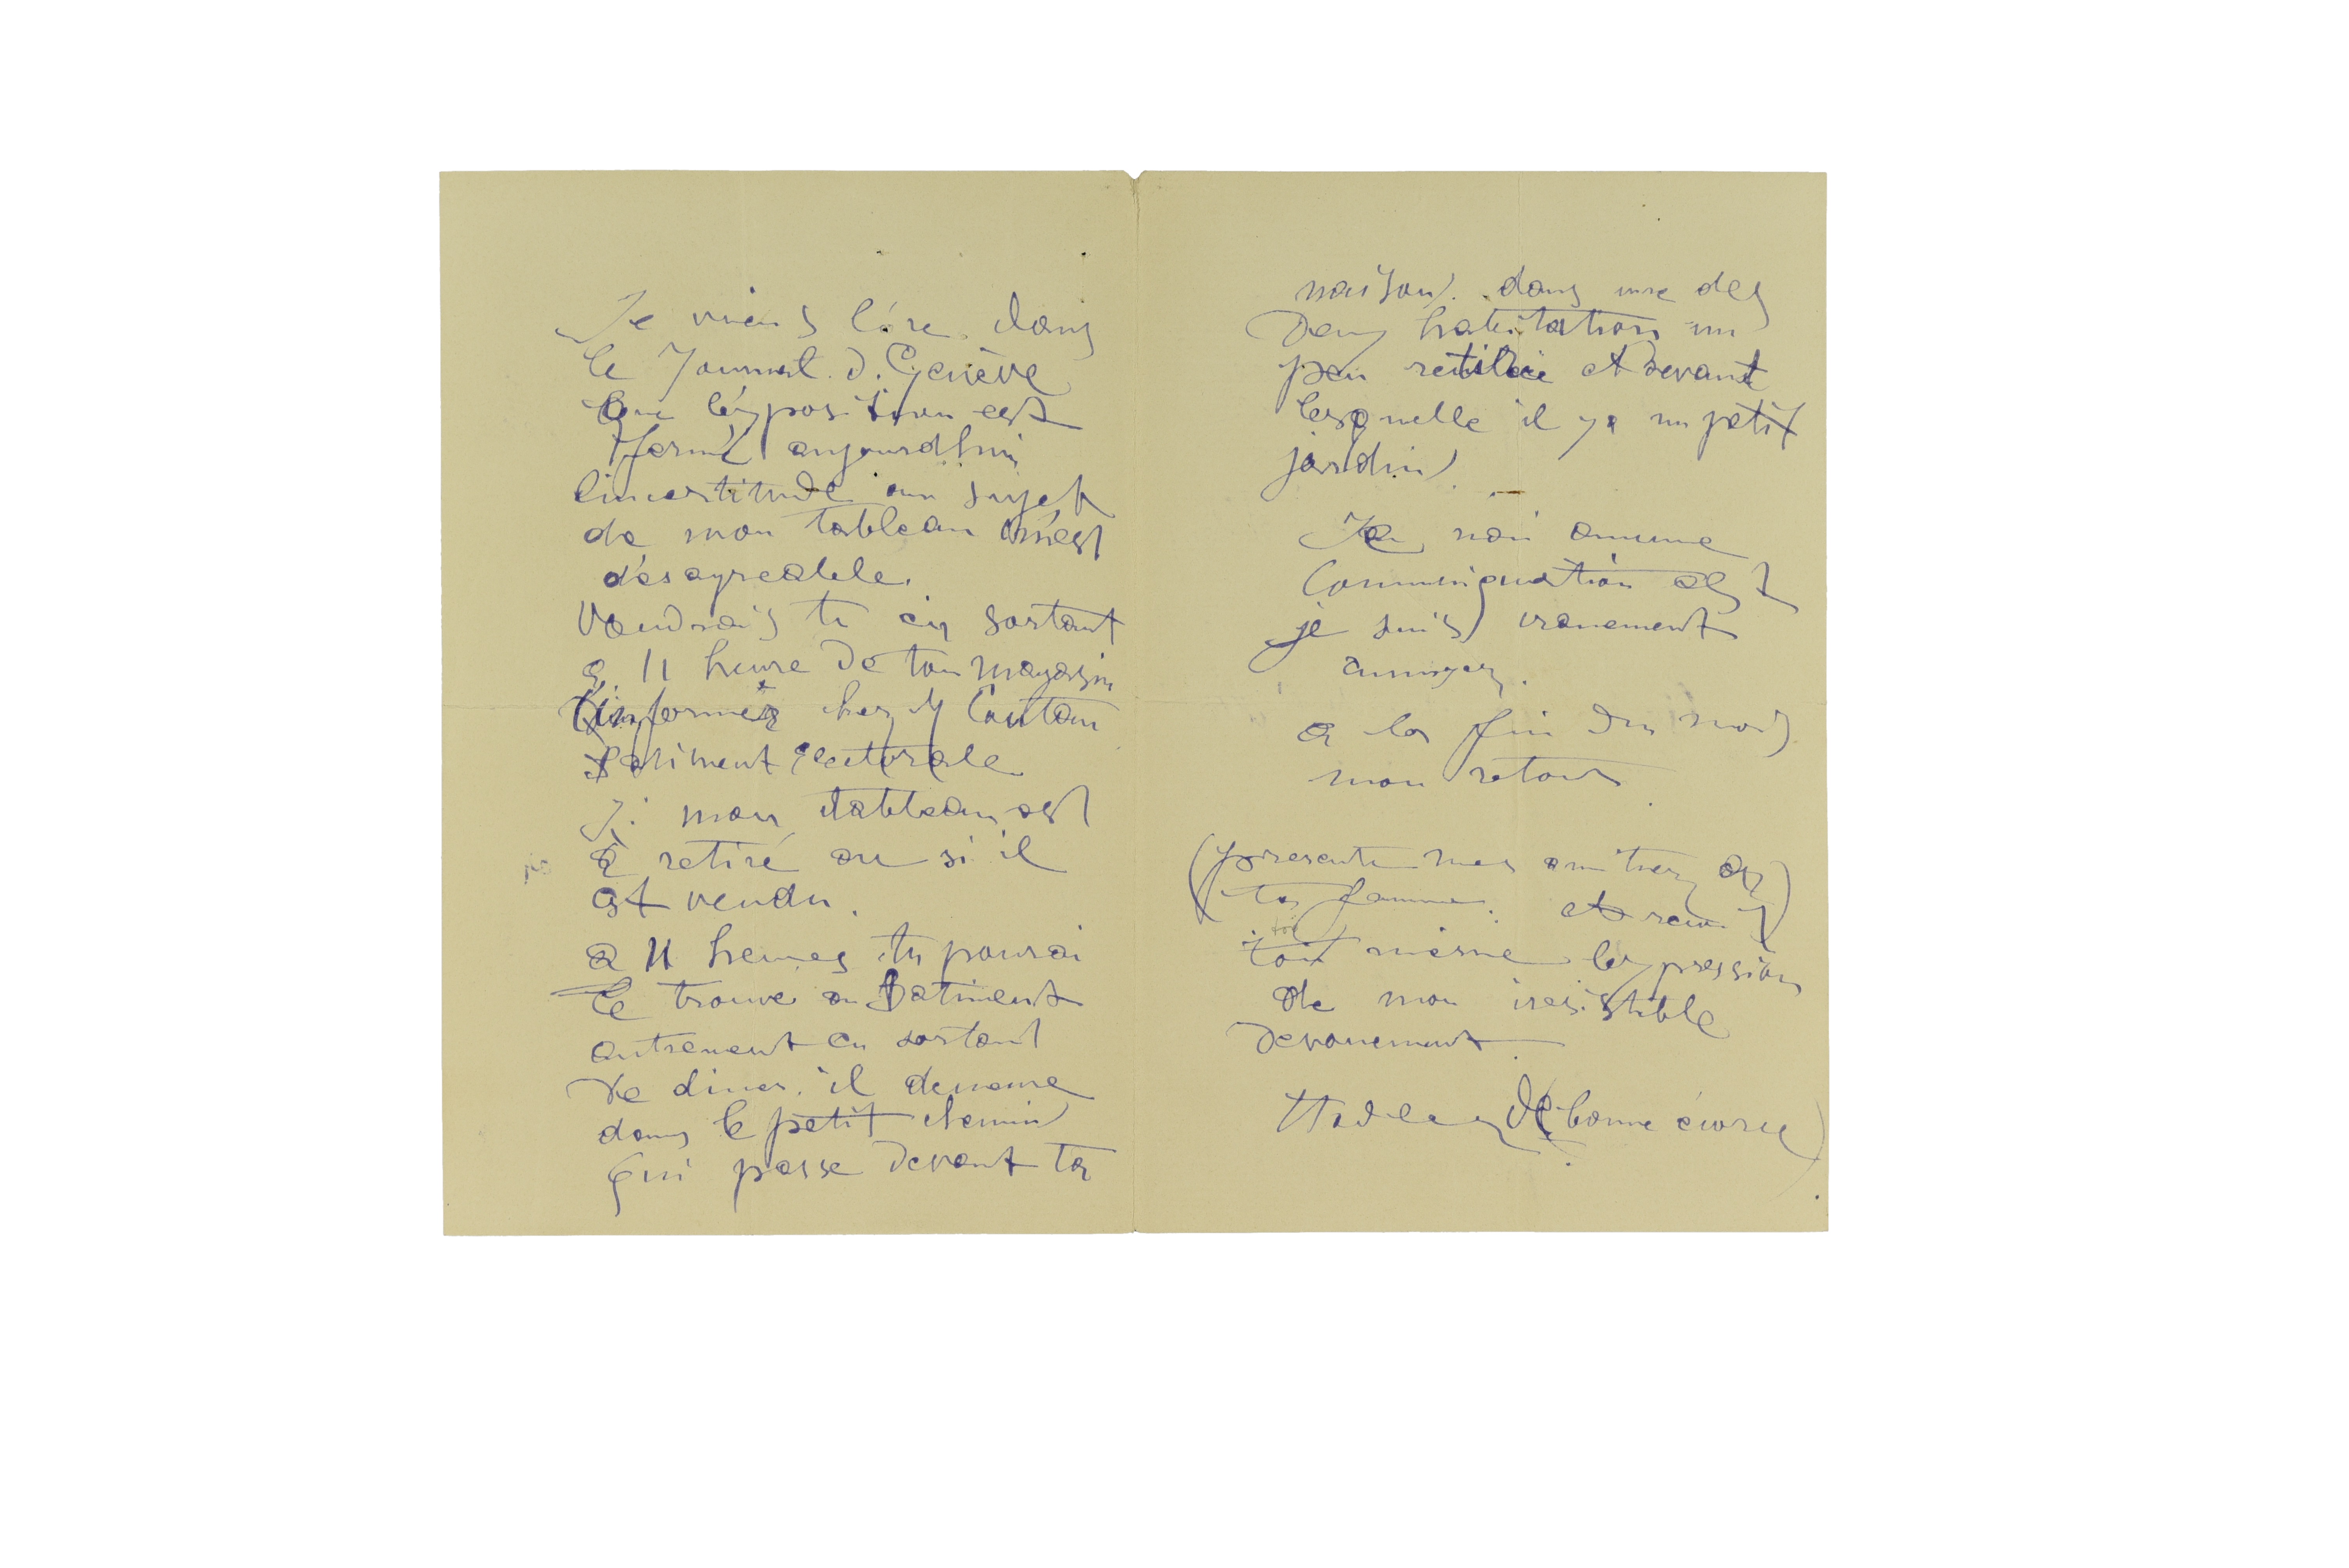 Je viens lire dans
le Journal d. Genève
que l'exposition est
fermé aujourdhui
l'incertitude au sujet
de mon tableau m'est
désagreable.
Voudrais tu en sortant
a 11 heure de ton magazin
t'informer chez M Cautau
Batiment électorale
si mon tableau est
a retiré ou si il
est vendu.
a 11 heures tu pourai
le trouve au Batiment
autrement en sortant
de diner. il demeure
dans le petit chemin
qui passe devant ta
maison. dans une des
deux habitation un
peu retirée et devant
lesquelle il y a un petit
jardin.
Je nai aucune
Communiquation et
je suis vraiement
annuyez.
a la fin du mois
mon retour.
(presente mes amitiez a
ta femme. et recoi
toi même l'expression
de mon iresistible
devouement.
Hodler de bonne écorce)